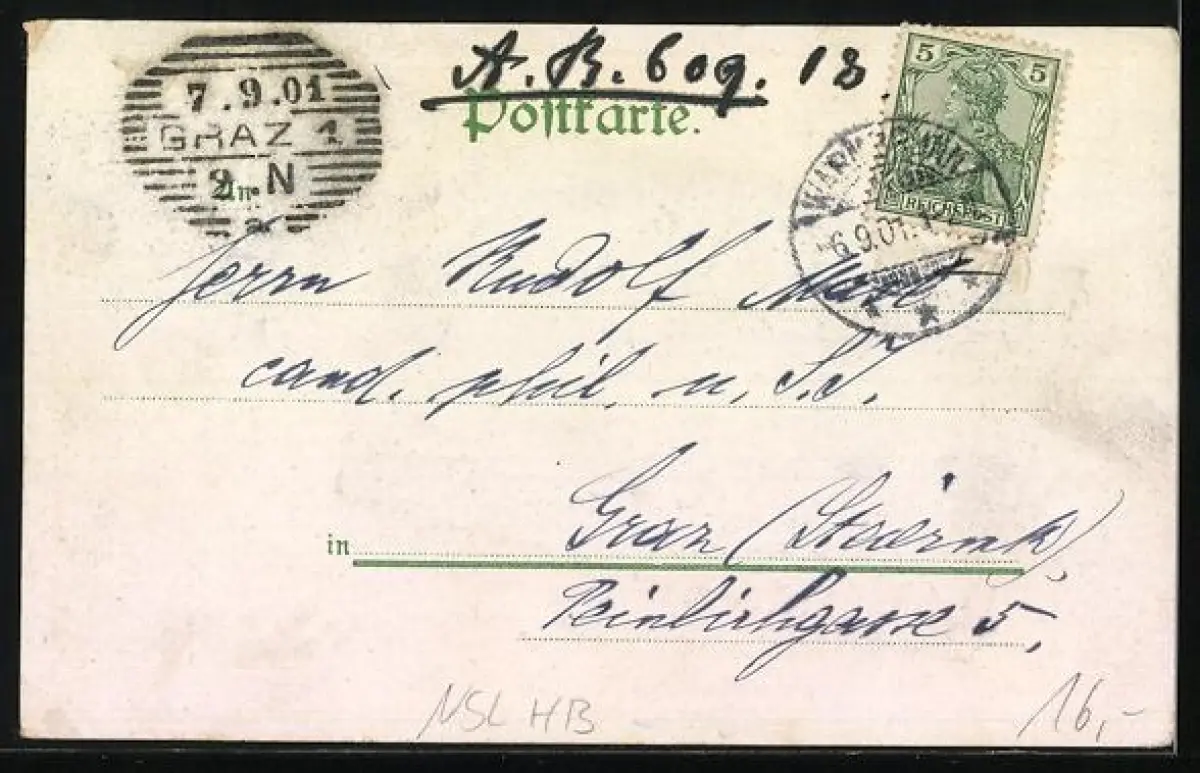 A. B. 609. 18.
Postkarte.
7.9.01
GRAZ 1
9. N
An
a
5 5
REICHSPOST
6.9.01.
Herrn Rudolf
cand. phil. u. S.J.
in Graz (Steierm.)
5,
NSL HB
16,-